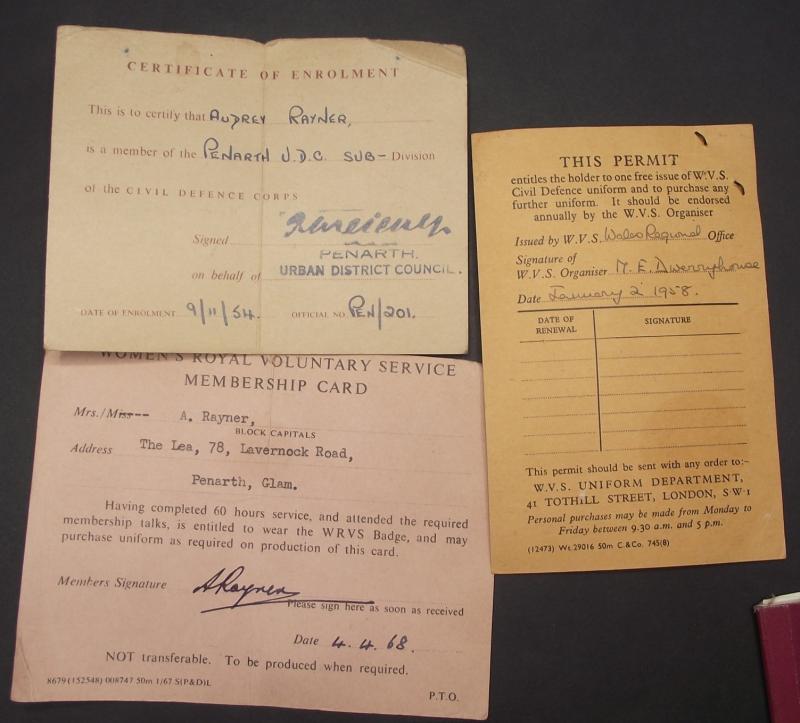 CERTIFICATE OF ENROLMENT
This is to certify that AUDREY RAYNER,
is a member of the PENARTH U.D.C. SUB- Division
of the CIVIL DEFENCE CORPS
Signed
PENARTH.
on behalf of URBAN DISTRICT COUNCIL.
DATE OF ENROLMENT 9/11/54. OFFICIAL NO. PEN/201.
WOMEN'S ROYAL VOLUNTARY SERVICE
MEMBERSHIP CARD
Mrs./Miss A. Rayner,
BLOCK CAPITALS
Address The Lea, 78, Lavernock Road,
Penarth, Glam.
Having completed 60 hours service, and attended the required
membership talks, is entitled to wear the WRVS Badge, and may
purchase uniform as required on production of this card.
Members Signature A Rayner
Please sign here as soon as received
Date 4.4.68.
NOT transferable. To be produced when required.
8679 (152548) 008747 50m 1/67 S(P&D)L
P.T.O.
THIS PERMIT
entitles the holder to one free issue of W.V.S.
Civil Defence uniform and to purchase any
further uniform. It should be endorsed
annually by the W.V.S. Organiser
Issued by W.V.S. Wales Regional Office
Signature of
W.V.S. Organiser M. E. Dwerryhouse
Date January 2 1958.
DATE OF RENEWAL SIGNATURE
This permit should be sent with any order to:-
W.V.S. UNIFORM DEPARTMENT,
41 TOTHILL STREET, LONDON, S.W.1
Personal purchases may be made from Monday to
Friday between 9.30 a.m. and 5 p.m.
(12473) Wt. 29016 50m C.&Co. 745(8)